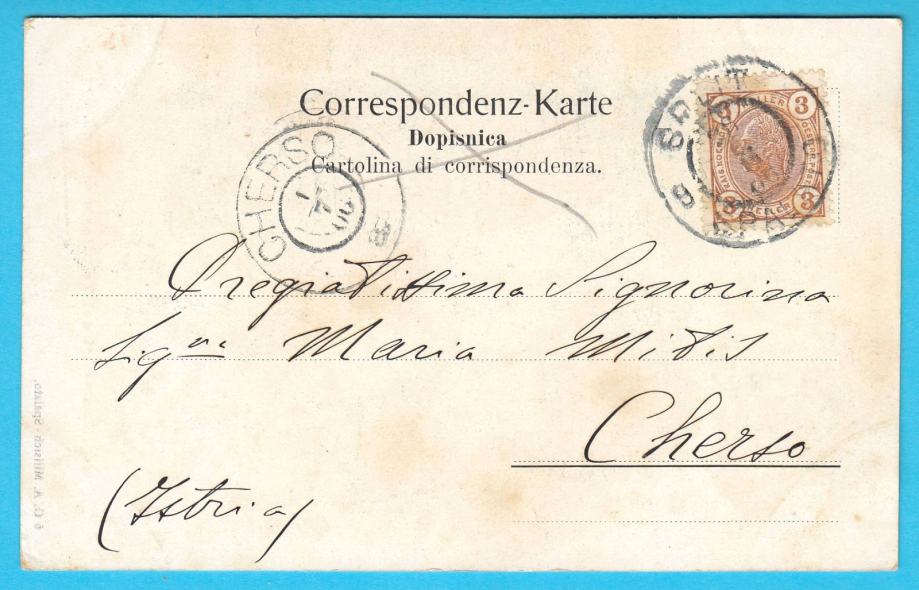 Correspondenz-Karte
Dopisnica
Cartolina di corrispondenza.
CHERSO
3 3
3 HELLER 3
Pregiatissima Signorina
Sigⁿᵃ Maria Mitis
Cherso
(Istria)
6 D. A. Milisich - Spalato.